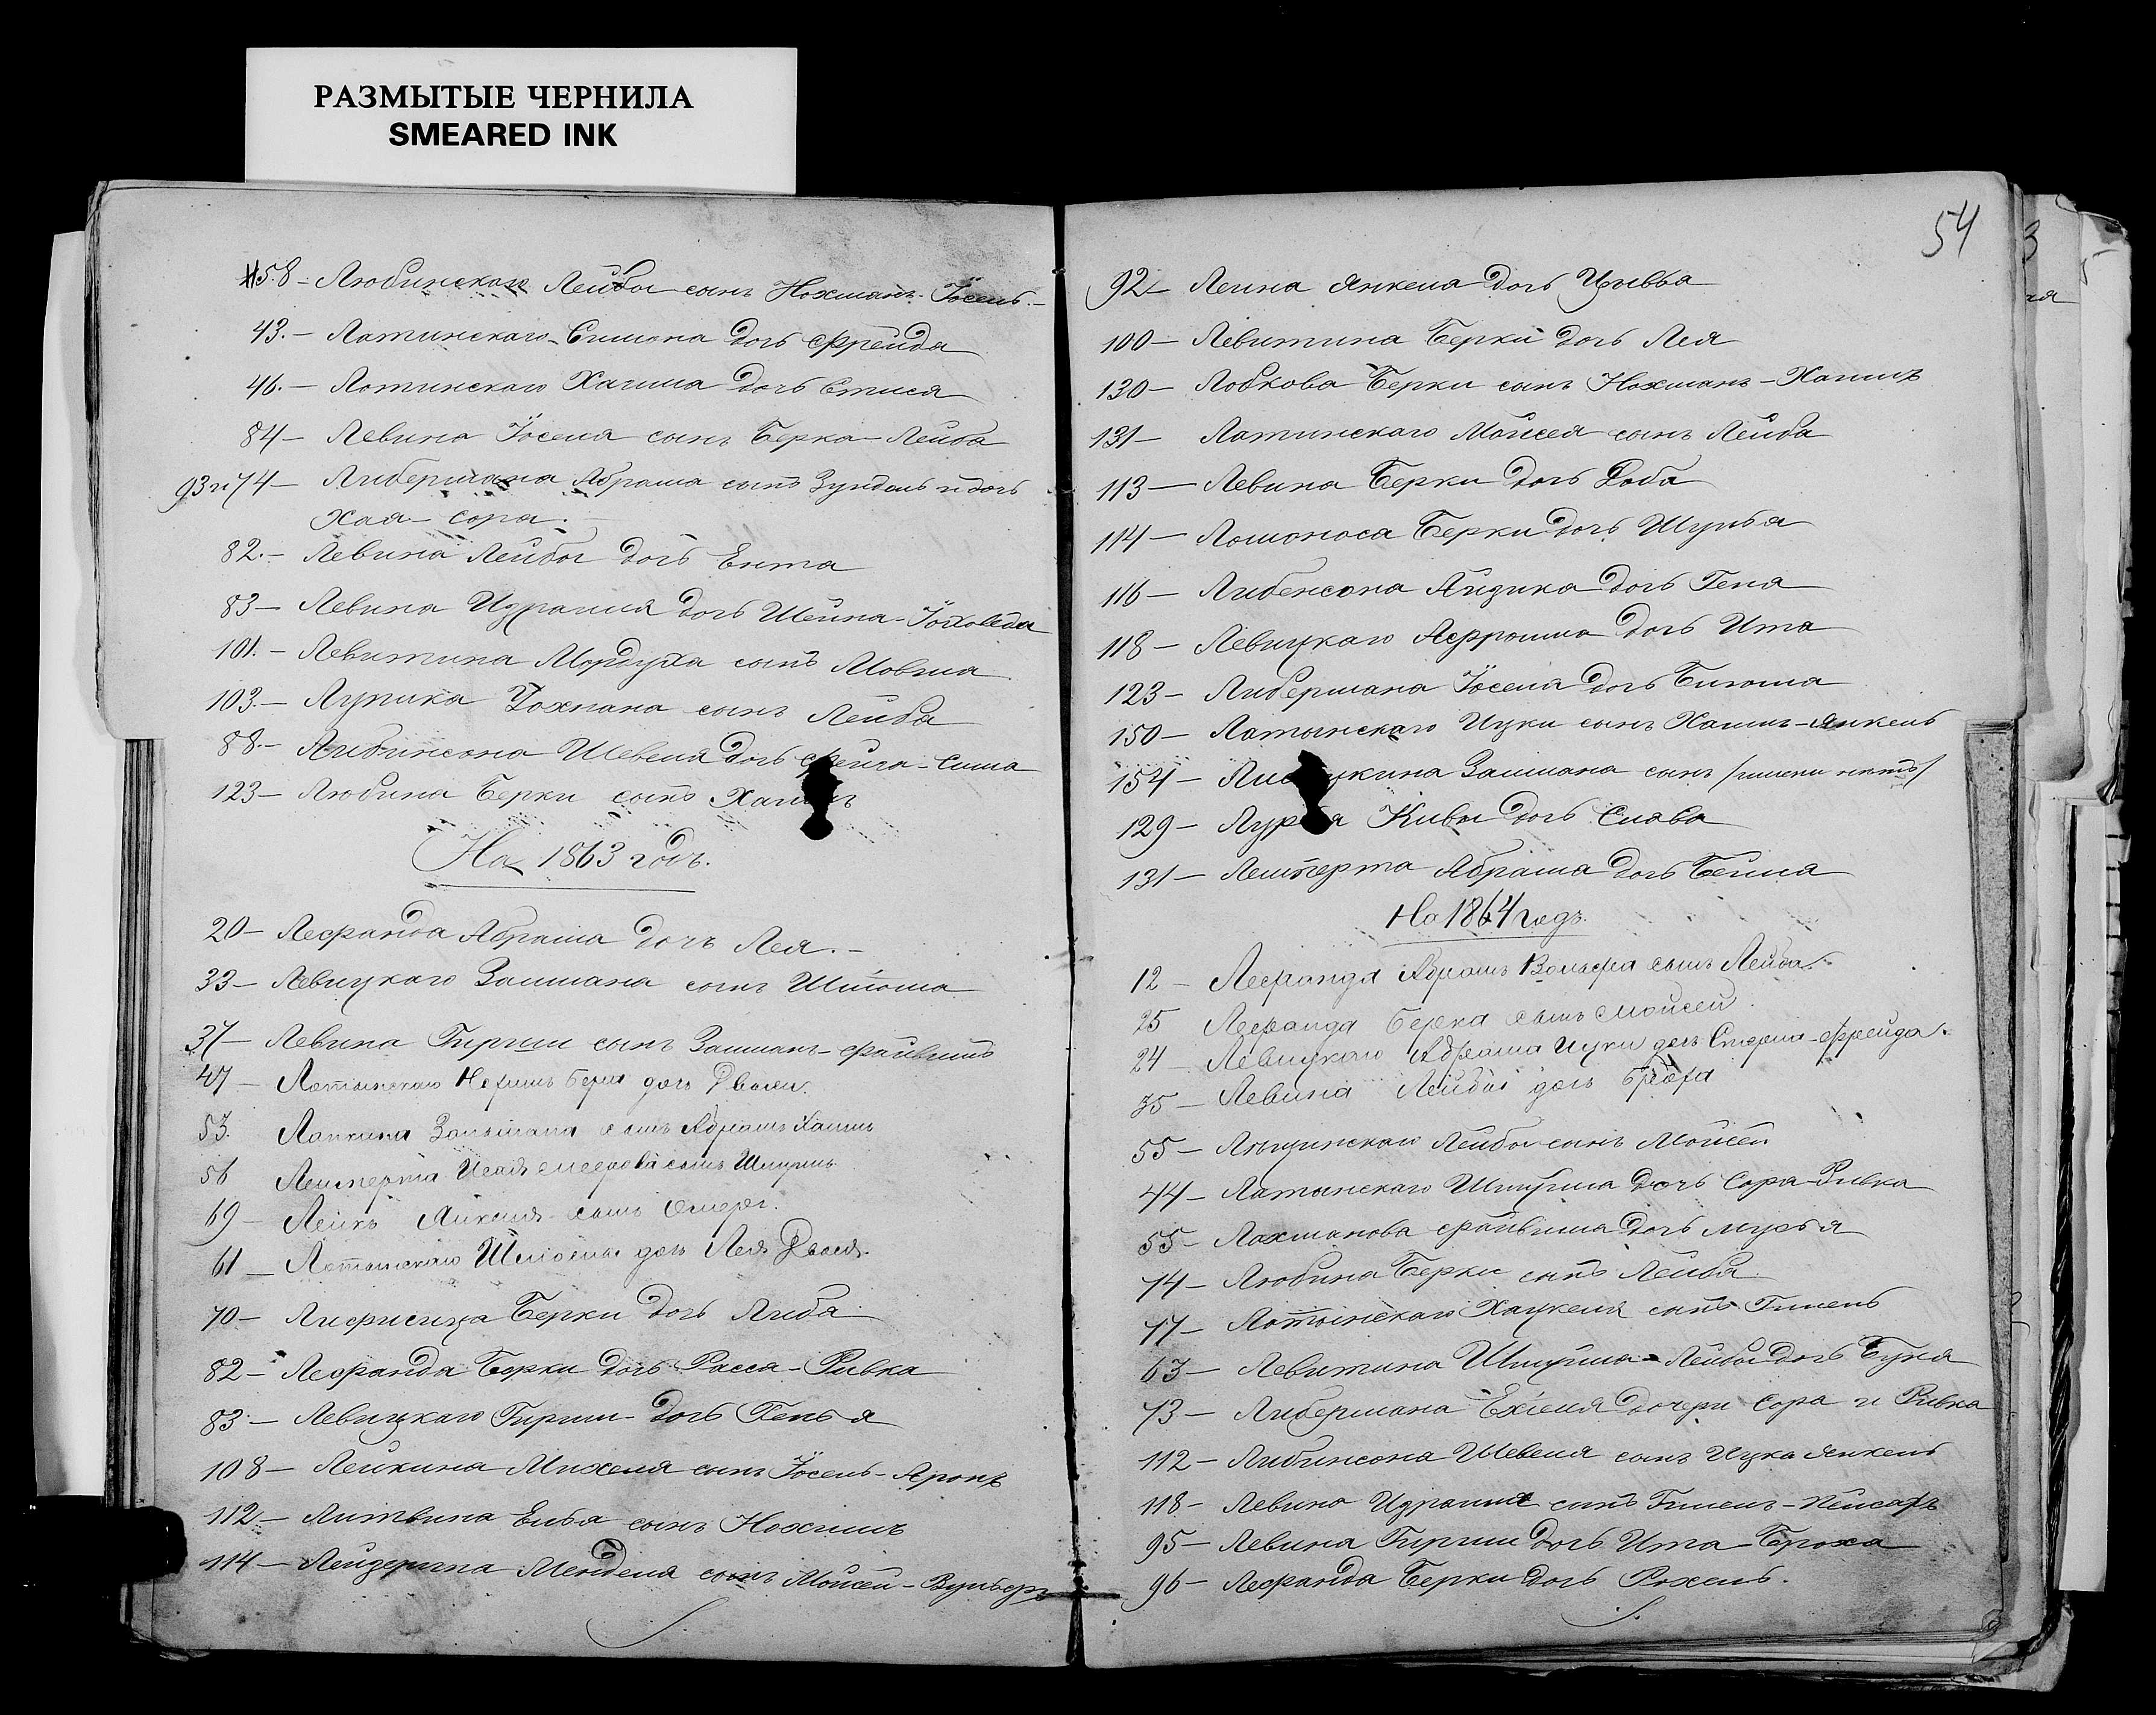 РАЗМЫТЫЕ ЧЕРНИЛА
SMEARED INK
58 - Любинскаго Лейбы сынъ Нохманъ-Іосель. -
43. - Латинскаго Симона дочь Фрейда
46. - Латинскаго Хаима дочь
84 - Левина Іоселя сынъ Берка-Лейба
93 и 74 - Либермана Абрама сынъ Зундель и дочь
Хая - Сора. -
82. - Левина Лейбы дочь Ента
83 - Левина Израиля дочь Шейна-Іохведа
101. - Левитина Мордуха сынъ Мовша
103. - Лурика сынъ Лейба
88. - Либинсона Шевеля дочь Фейга-Сима
123 - Любина Берки сынъ
На 1863 годъ.
20 - Лефранда Абрама дочъ Лея. -
33 - Левицкаго Залмана сынъ
37 - Левина Гирши сынъ Залманъ-Файвишъ
47 - Латынскаго Берка дочь Двося.
53. Лапкина сынъ Абрамъ Хаимъ
56 Лемперта сынъ Шмуилъ
69 - Лейкъ Янкеля сынъ
61 - Латынскаго дочь Лея Двося.
70 - Лифшица Берки дочь Либа
82 - Лефранда Берки дочь Расся-Ривка
83 - Левицкаго Гирши - дочь Генья
108 - Лейкина Михеля сынъ Іосель-Аронъ
112 - Литвина Ельи сынъ Нохимъ
114 - Лейзерина Менделя сынъ Мойсей - Вульфъ
54
92 - Леина Янкеля дочь Цывья
100 - Левитина Берки дочь Лея
130 - Лобкова Берки сынъ Нохманъ-Хаимъ
131 - Латинскаго Мойсея сынъ Лейба
113 - Левина Берки дочь Доба
114 - Ломоноса Берки дочь
116 - Либенсона Айзика дочь Геня
118 - Левицкаго Афроима дочь Ита
123 - Либермана Іоселя дочь Блюма
150 - Латынскаго Ицки сынъ Хаимъ-Янкель
154 - Залмана сынъ /имени нетъ/
129 - Кивы дочь Слава
131 - Лемперта Абрама дочь Бейля
На 1864 годъ.
12 - Лефранда Абрамъ Вольфа сынъ Лейба. -
25 Лефранда Берка сынъ Мойсей.
24 - Левицкаго Абрама Ицки дочь Стерна-Фрейда. -
35 - Левина Лейбы дочь Броха
55 - Лейбы сынъ Мойсей
44 - Латынскаго Шмуила дочь Сора-Ривка
55 - Лахманова Файвиша дочь Мурья
74 - Любина Берки сынъ Лейба.
77 - Латынскаго Хацкеля сынъ Гилель
63 - Левитина Шмуила-Лейбы дочь Буня
73 - Либермана Ехіеля дочери Сора и Ривка
112 - Либинсона Шевеля сынъ Ицка Янкель
118 - Левина Израиля сынъ Гилель-Пейсахъ
95 - Левина Гирши дочь Ита-Броха
96 - Лефранда Берки дочь Рохель.